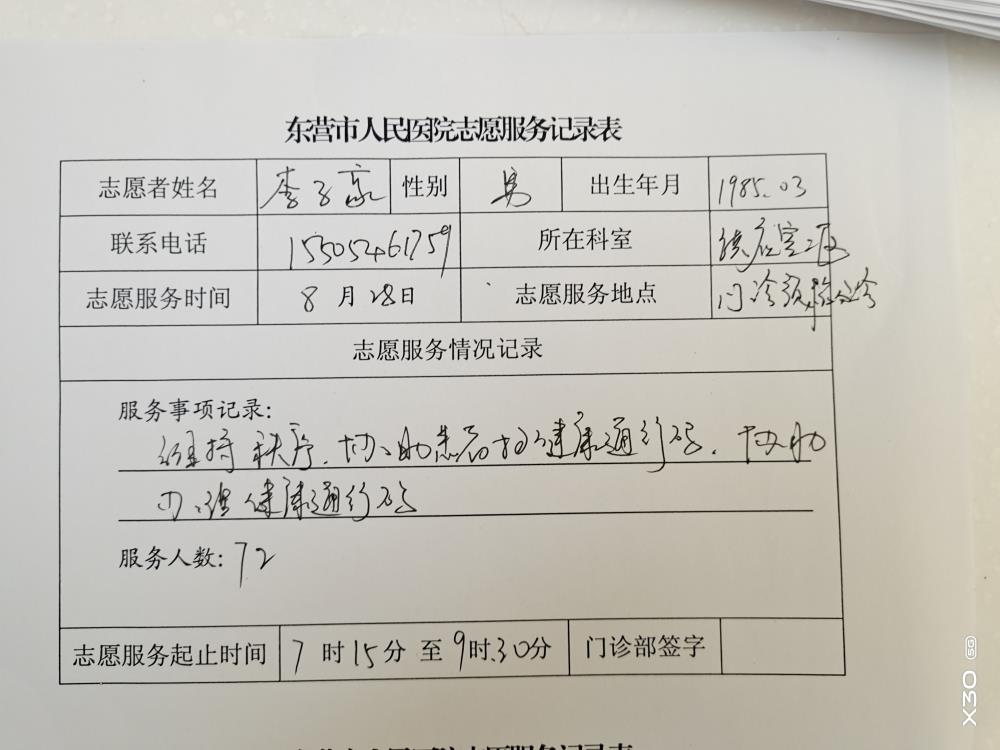 东营市人民医院志愿服务记录表
志愿者姓名 李子豪 性别 男 出生年月 1985.03
联系电话 15305461759 所在科室
志愿服务时间 8月28日 志愿服务地点 门诊预检分诊
志愿服务情况记录
服务事项记录:
维持秩序.协助患者扫健康通行码.协助
办理健康通行码
服务人数:72
志愿服务起止时间 7时15分至9时30分 门诊部签字
X30 5G